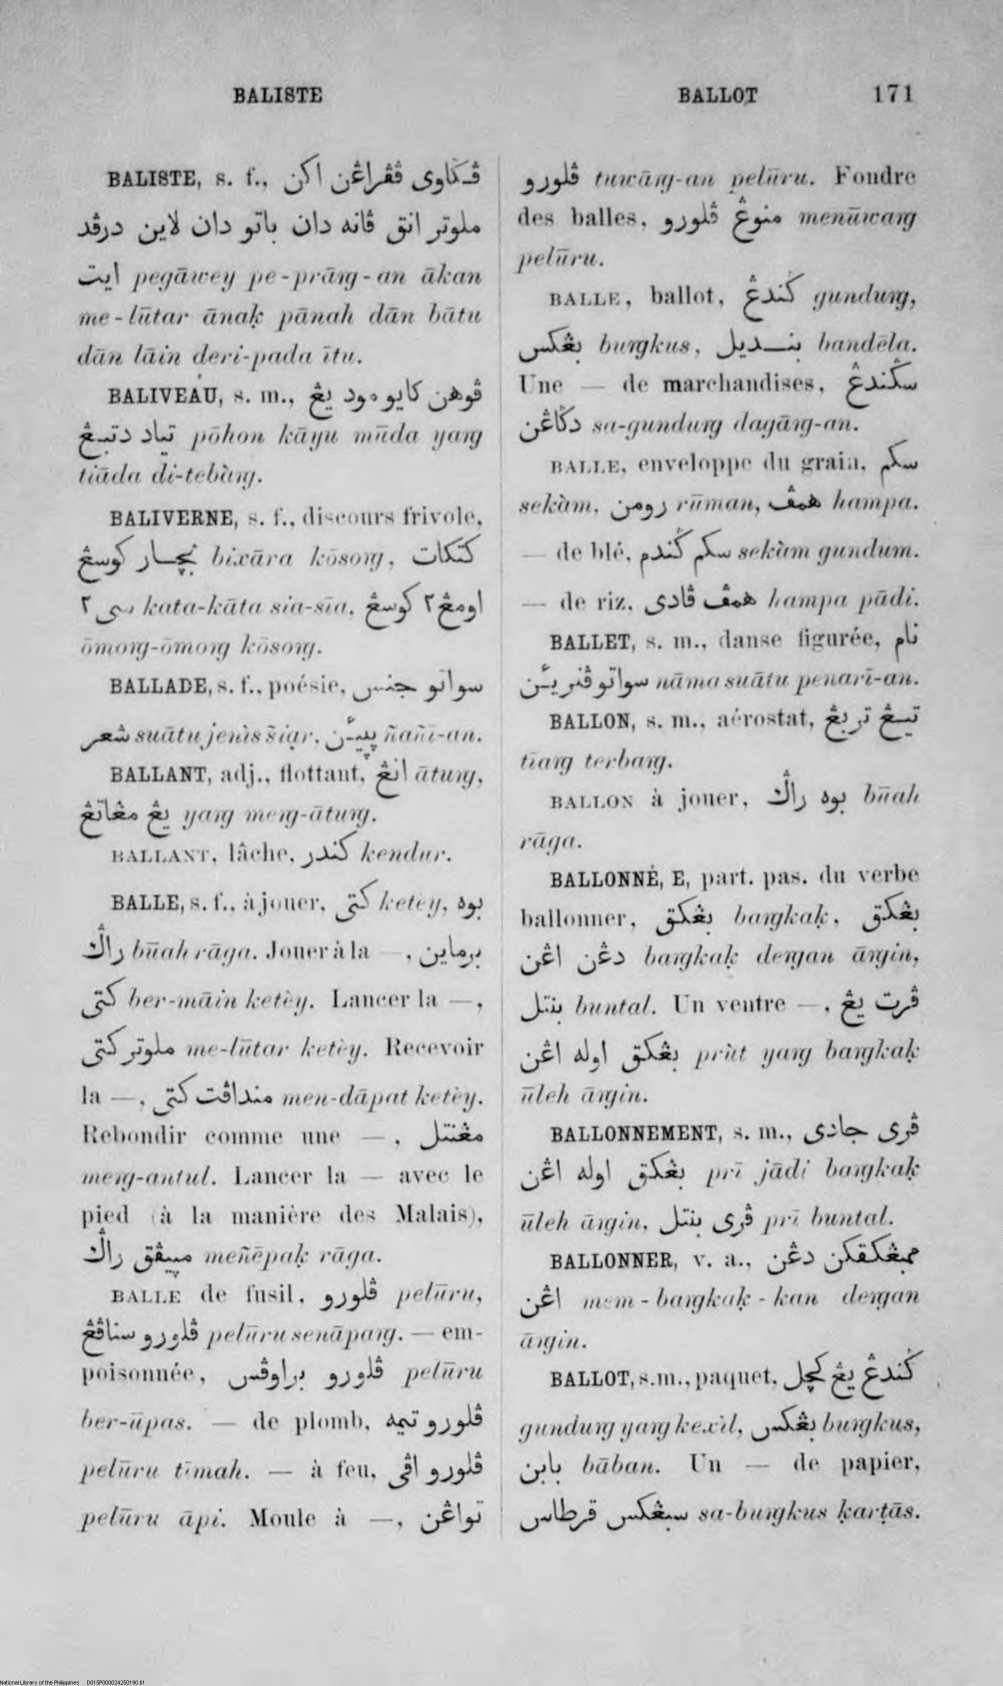 BALISTE
BALLOT 171
BALISTE, s. f., ڤݢاوى ڤڤراڠن اكن
ملوتر انق ڤانه دان باتو دان لاين درڤد
ايت pegāwey pe-prārg-an ākan
me-lūtar ānaḳ pānah dān bātu
dān lāin deri-pada ītu.
BALIVEAU, s. m., ڤوهن كايو مود يڠ
تياد دتبڠ pōhon kāyu mūda yarg
tiāda di-tebàrg.
BALIVERNE, s. f., discours frivole,
بچار كوسڠ bixāra kōsorg, كتكات
سى٢ kata-kāta sia-sīa, اومڠ٢ كوسڠ
ōmorg-ōmorg kōsorg.
BALLADE, s. f., poésie, سواتو جنس
شعر suātu jenìs šiạr, پپين ñañī-an.
BALLANT, adj., flottant, اتڠ āturg,
يڠ مڠاتڠ yarg merg-āturg.
BALLANT, lâche, كندر kendur.
BALLE, s. f., à jouer, كتى ketèy, بوه
راݢ būah rāga. Jouer à la —, برماين
كتى ber-māin ketèy. Lancer la —,
ملوتر كتى me-lūtar ketèy. Recevoir
la —, منداڤت كتى men-dāpat ketèy.
Rebondir comme une —, مڠنتل
merg-antul. Lancer la — avec le
pied (à la manière des Malais),
مپيڤق راݢ meñēpaḳ rāga.
BALLE de fusil, ڤلورو pelūru,
ڤلورو سناڤڠ pelūru senāparg. — em-
poisonnée, ڤلورو براوڤس pelūru
ber-ūpas. — de plomb, ڤلورو تيمه
pelūru tīmah. — à feu, ڤلورو اڤى
pelūru āpi. Moule à —, تواڠن
ڤلورو tuwārg-an pelūru. Fondre
des balles, منوڠ ڤلورو menūwarg
pelūru.
BALLE, ballot, ݢندڠ gundurg,
بڠكس burgkus, بنديل bandēla.
Une — de marchandises, سݢندڠ
دݢاڠن sa-gundurg dagārg-an.
BALLE, enveloppe du grain, سكم
sekàm, رومن rūman, همڤ hampa.
— de blé, سكم ݢندم sekàm gundum.
— de riz, همڤ ڤادى hampa pādi.
BALLET, s. m., danse figurée, نام
سواتو ڤنرين nāma suātu penarī-an.
BALLON, s. m., aérostat, تيڠ تربڠ
tīarg terbarg.
BALLON à jouer, بوه راݢ būah
rāga.
BALLONNÉ, E, part. pas. du verbe
ballonner, بڠكق bargkaḳ, بڠكق
دڠن اڠن bargkaḳ dergan ārgin,
بنتل buntal. Un ventre —, ڤرت يڠ
بڠكق اوله اڠن prùt yarg bargkaḳ
ūleh ārgin.
BALLONNEMENT, s. m., ڤرى جادى
بڠكق اوله اڠن prī jādi bargkaḳ
ūleh ārgin, ڤرى بنتل prī buntal.
BALLONNER, v. a., ممبڠكقكن دڠن
اڠن mem-bargkaḳ-kan dergan
ārgin.
BALLOT, s.m., paquet, ݢندڠ يڠ كچل
gundurg yarg kexìl, بڠكس burgkus,
بابن bāban. Un — de papier,
سبڠكس قرطاس sa-burgkus ḳarṭās.
National Library of the Philippines